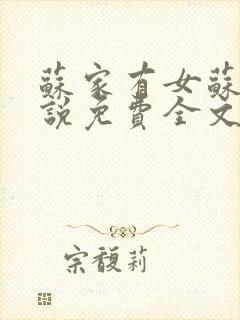 蘇家有女蘇
說免費全文
宗馥莉